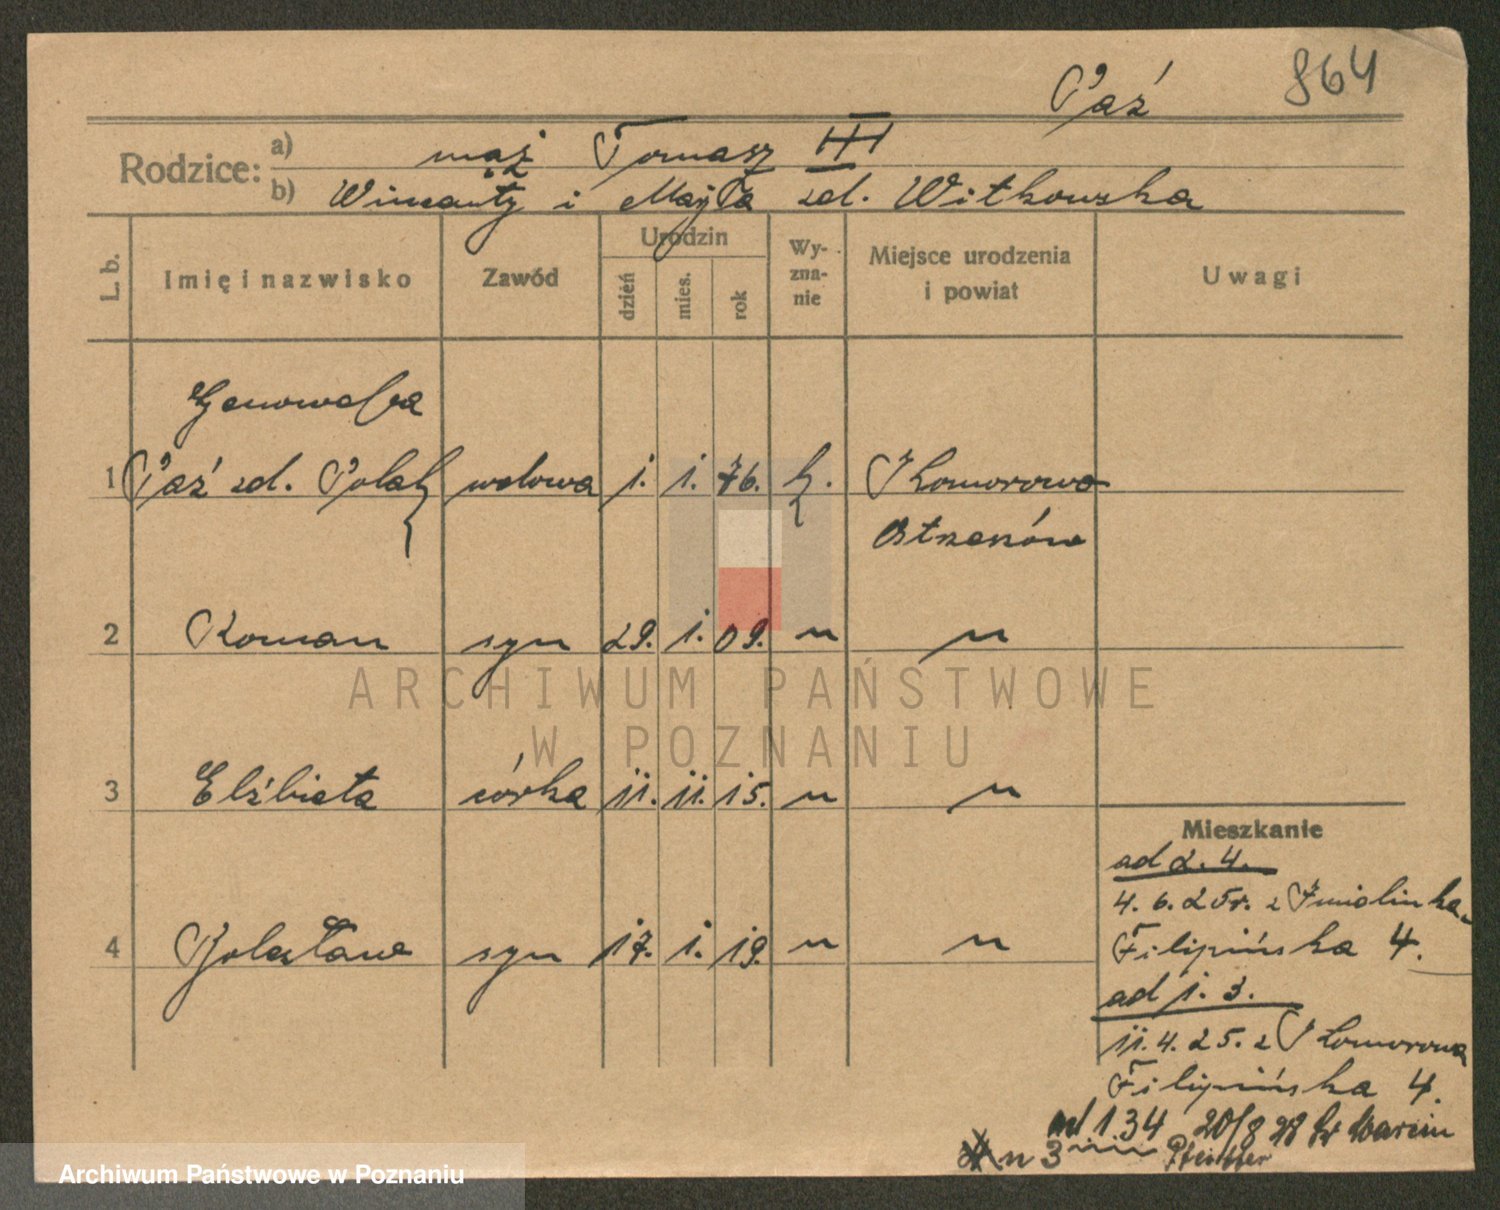 864
Paź
Rodzice:
a) mąż Tomasz III
b) Wincenty i zd. Witkowska
L. b.
Imię i nazwisko
Zawód
Urodzin
dzień
mies.
rok
Wy-
zna-
nie
Miejsce urodzenia
i powiat
Uwagi
Genowefa
1 Paź zd. Polak wdowa 1. 1. 76. k. Komorowo
Ostrzeszów
2 Roman syn 29. 1. 09. " "
3 Elżbieta córka 11. 11. 15. " "
4 Bolesław syn 17. 1. 19. " "
Mieszkanie
ad 2. 4.
4. 6. 25r. z
Filipińska 4.
ad 1. 3.
11. 4. 25. z Komorowa
Filipińska 4.
ad 1 3 4 20/8 28 Św Marcin
3
ARCHIWUM PAŃSTWOWE
W POZNANIU
Archiwum Państwowe w Poznaniu